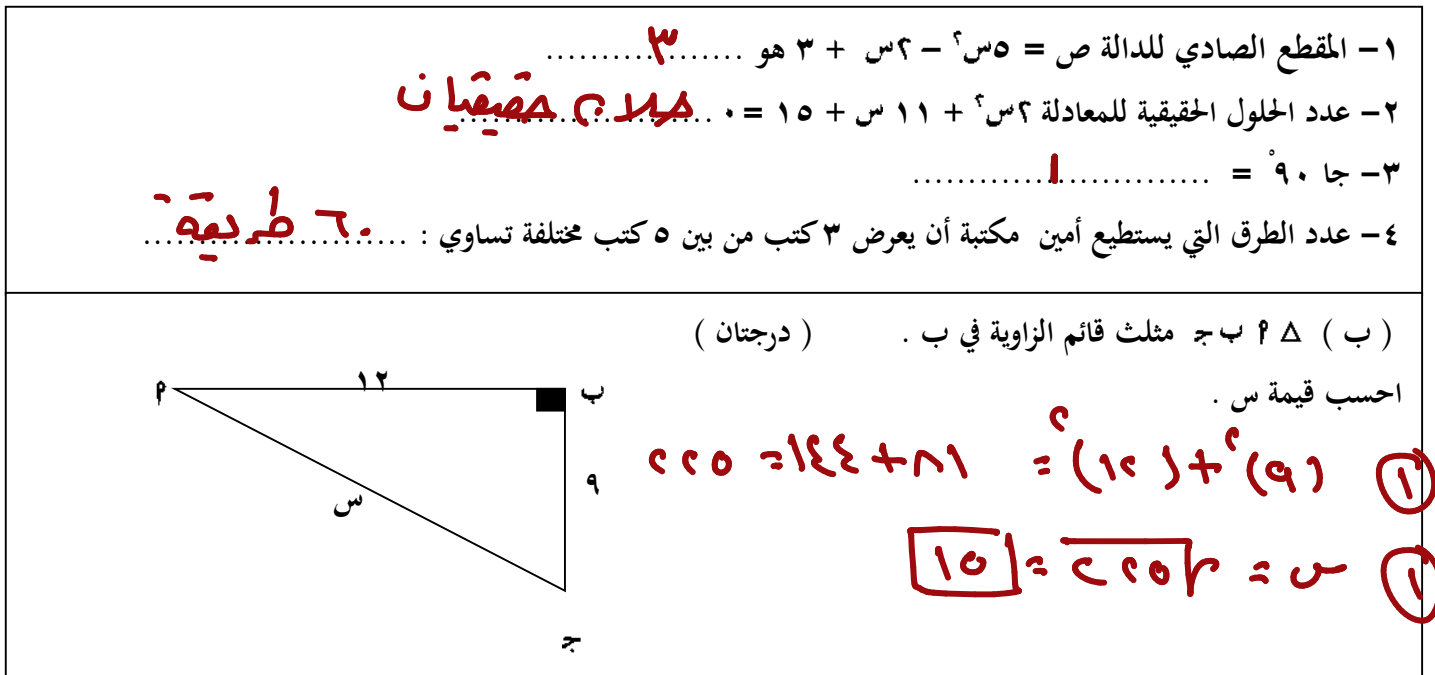 ١- المقطع الصادي للدالة ص = ٥س٢ - ٢س + ٣ هو .......٣.......
٢- عدد الحلول الحقيقية للمعادلة ٢س٢ + ١١ س + ١٥ = ٠ ....حلان حقيقيان....
٣- جا ٩٠° = ..........١..........
٤- عدد الطرق التي يستطيع أمين مكتبة أن يعرض ٣ كتب من بين ٥ كتب مختلفة تساوي : ....٦٠ طريقة....
( ب ) △ أ ب جـ مثلث قائم الزاوية في ب . ( درجتان )
احسب قيمة س .
١٢
أ
ب
٩
س
جـ
١ (٩)٢ + (١٢)٢ = ٨١ + ١٤٤ = ٢٢٥
١ س = √٢٢٥ = ١٥